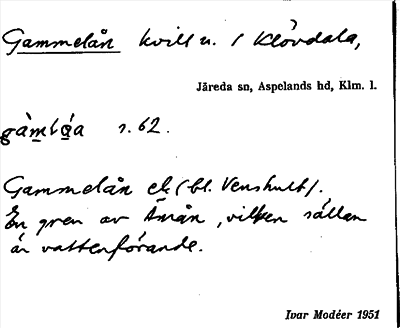 Gammelån kvill u. / Klövdala,
Järeda sn, Aspelands hd, Klm. l.
s. 62.
Gammelån ek (bl. Venshult).
En gren av Emån, vilken sällan
är vattenförande.
Ivar Modéer 1951